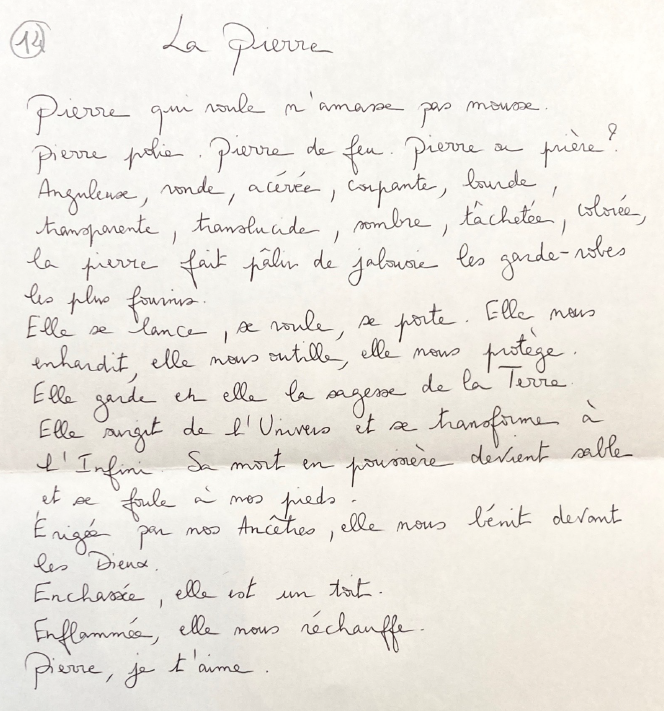 14
La Pierre
Pierre qui roule n'amasse pas mousse.
Pierre polie. Pierre de feu. Pierre ou prière?
Anguleuse, ronde, acérée, coupante, lourde,
transparente, translucide, sombre, tâchetée, colorée,
la pierre fait pâlir de jalousie les garde-robes
les plus fournis.
Elle se lance, se roule, se porte. Elle nous
enhardit, elle nous outille, elle nous protège.
Elle garde en elle la sagesse de la Terre.
Elle surgit de l'Univers et se transforme à
l'Infini. Sa mort en poussière devient sable
et se foule à nos pieds.
Érigée par nos Ancêtres, elle nous bénit devant
les Dieux.
Enchassée, elle est un toit.
Enflammée, elle nous réchauffe.
Pierre, je t'aime.